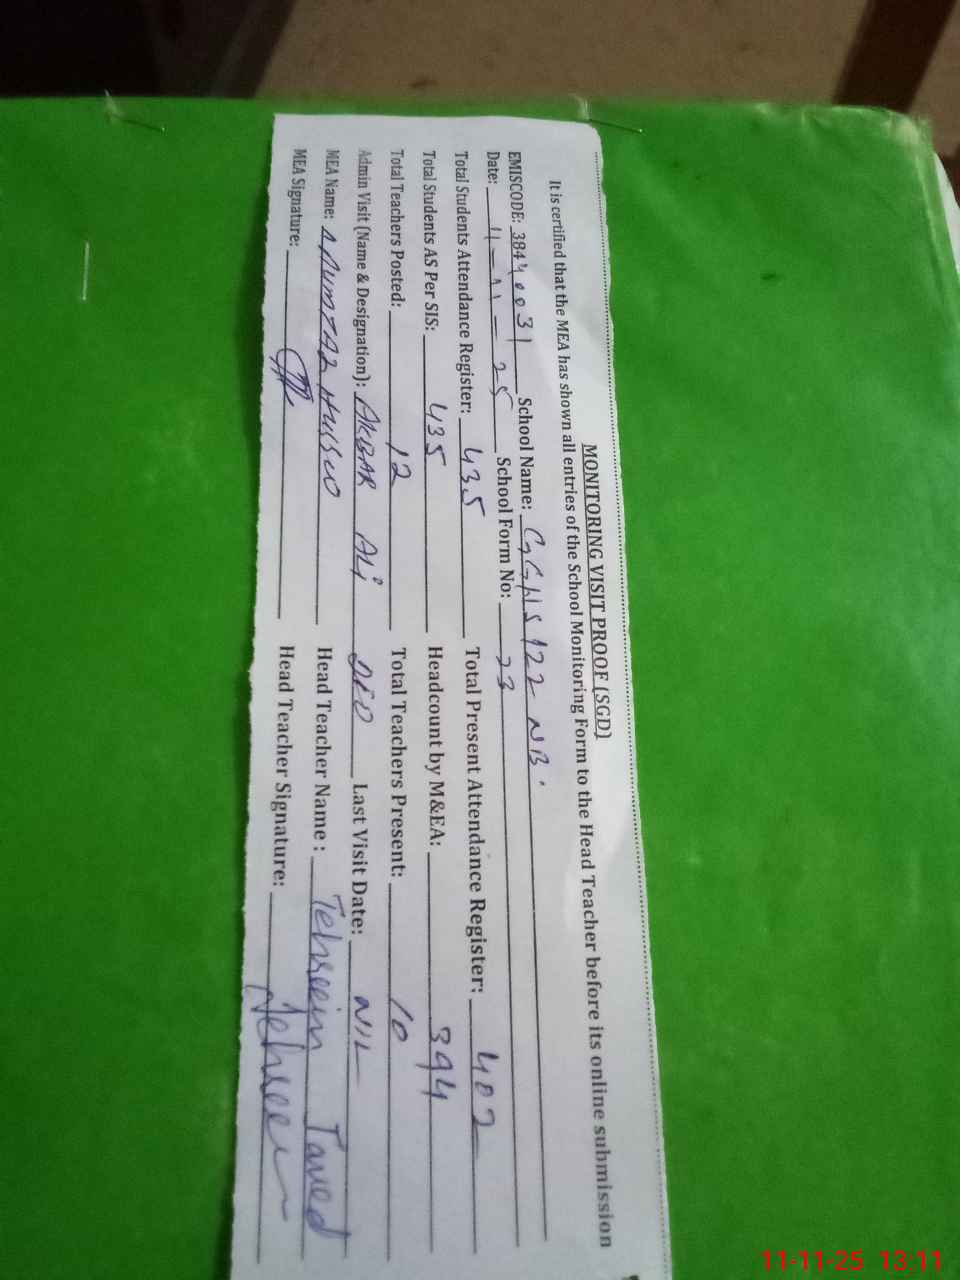 MONITORING VISIT PROOF (SGD)
It is certified that the MEA has shown all entries of the School Monitoring Form to the Head Teacher before its online submission
EMISCODE: 38440031 School Name: GGHS 122 NB.
Date: 11-11-25 School Form No: 23
Total Students Attendance Register: 435 Total Present Attendance Register: 402
Total Students AS Per SIS: 435 Headcount by M&EA: 394
Total Teachers Posted: 12 Total Teachers Present: 10
Admin Visit (Name & Designation): AKBAR ALi DEO Last Visit Date: NIL
MEA Name: Head Teacher Name: Tehreem Javed
MEA Signature: Head Teacher Signature: Tehreem
11-11-25 13:11